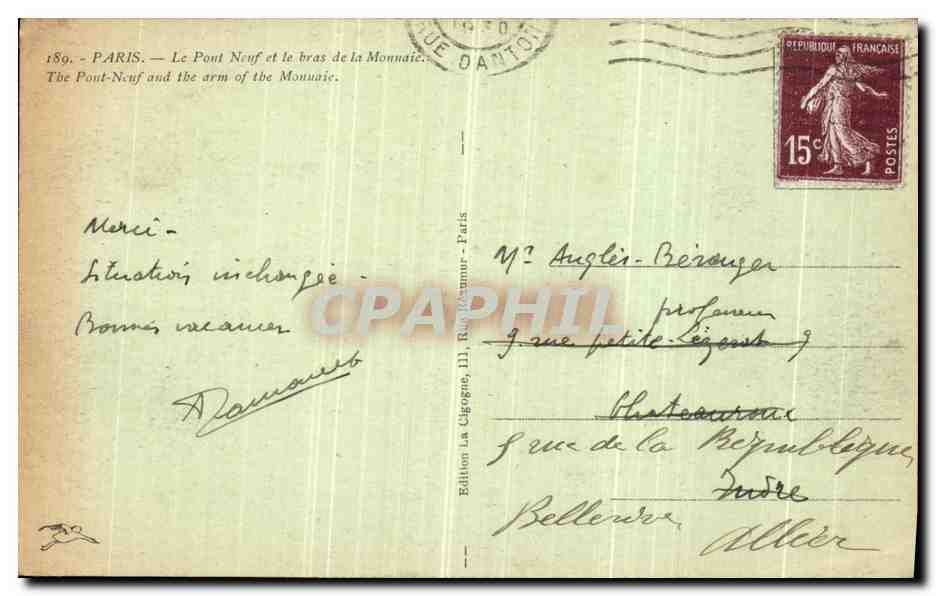 189. - PARIS. — Le Pont Neuf et le bras de la Monnaie.
The Pont-Neuf and the arm of the Monnaie.
RUE DANTON
RÉPUBLIQUE FRANÇAISE
15c
POSTES
Merci -
Situation inchangée -
Bonnes vacances
Edition La Cigogne, 111, Rue Réaumur - Paris
CPAPHIL
Mr Anglès-Béranger
professeur
9 rue petite 9
Chateauroux
9 rue de la République
Indre
Bellerive
Allier